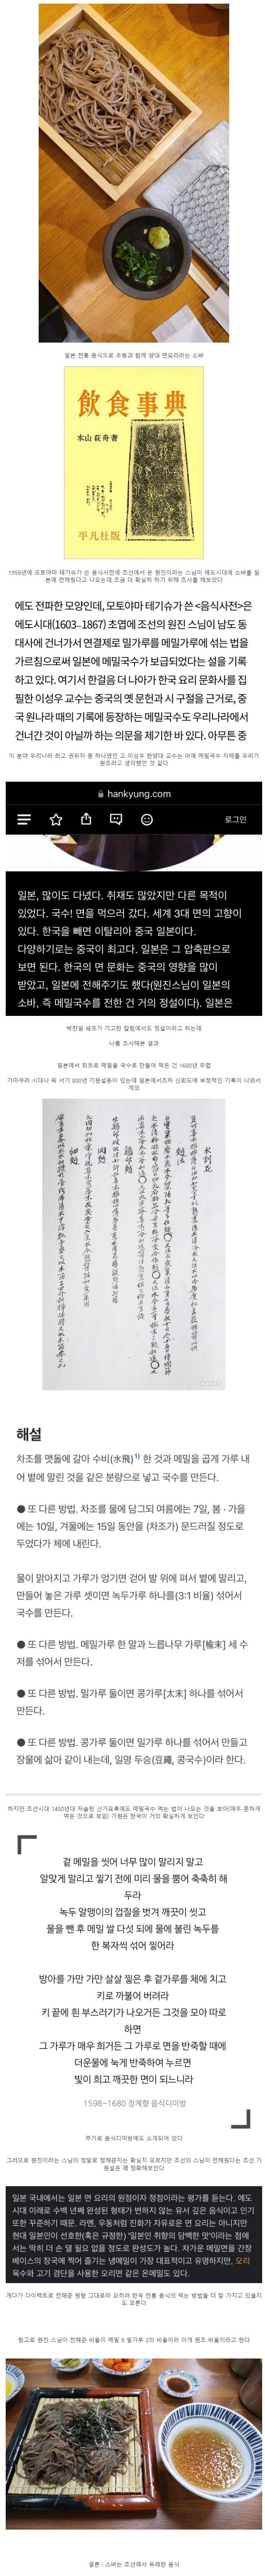 일본 전통 음식으로 우동과 함께 양대 면요리라는 소바
飲食事典
本山荻舟著
平凡社版
1958년에 모토야마 테기슈가 쓴 음식사전에 조선에서 온 원진이라는 스님이 에도시대에 소바를 일
본에 전해줬다고 나오는데 조금 더 확실히 하기 위해 조사를 해보았다
에도 전파한 모양인데, 모토야마 테기슈가 쓴 <음식사전>은
에도시대(1603~1867) 초엽에 조선의 원진 스님이 남도 동
대사에 건너가서 연결제로 밀가루를 메밀가루에 섞는 법을
가르침으로써 일본에 메밀국수가 보급되었다는 설을 기록
하고 있다. 여기서 한걸음 더 나아가 한국 요리 문화사를 집
필한 이성우 교수는 중국의 옛 문헌과 시 구절을 근거로, 중
국 원나라 때의 기록에 등장하는 메밀국수도 우리나라에서
건너간 것이 아닐까 하는 의문을 제기한 바 있다. 아무튼 중
이 분야 우리나라 최고 권위자 중 하나였던 고 이성우 한양대 교수는 아예 메밀국수 자체를 우리가
원조라고 생각했던 것 같다
hankyung.com
로그인
일본, 많이도 다녔다. 취재도 많았지만 다른 목적이
있었다. 국수! 면을 먹으러 갔다. 세계 3대 면의 고향이
있다. 한국을 빼면 이탈리아 중국 일본이다.
다양하기로는 중국이 최고다. 일본은 그 압축판으로
보면 된다. 한국의 면 문화는 중국의 영향을 많이
받았고, 일본에 전해주기도 했다(원진스님이 일본의
소바, 즉 메밀국수를 전한 건 거의 정설이다). 일본은
박찬일 쉐프가 기고한 칼럼에서도 정설이라고 하는데
나름 조사해본 결과
일본에서 최초로 메밀을 국수로 만들어 먹은 건 1600년 무렵
가마쿠라 시대나 뭐 서기 800년 기원설등이 있는데 일본에서조차 신뢰도에 부정적인 기록이 나와서
제외
해설
차조를 맷돌에 갈아 수비(水飛)1) 한 것과 메밀을 곱게 가루 내
어 볕에 말린 것을 같은 분량으로 넣고 국수를 만든다.
● 또 다른 방법. 차조를 물에 담그되 여름에는 7일, 봄 · 가을
에는 10일, 겨울에는 15일 동안을 (차조가) 문드러질 정도로
두었다가 체에 내린다.
물이 맑아지고 가루가 엉기면 걷어 발 위에 펴서 볕에 말리고,
만들어 놓은 가루 셋이면 녹두가루 하나를(3:1 비율) 섞어서
국수를 만든다.
● 또 다른 방법. 메밀가루 한 말과 느릅나무 가루[楡末] 세 수
저를 섞어서 만든다.
● 또 다른 방법. 밀가루 둘이면 콩가루[太末] 하나를 섞어서
만든다.
● 또 다른 방법. 콩가루 둘이면 밀가루 하나를 섞어서 만들고
장물에 삶아 같이 내는데, 일명 두승(豆繩, 콩국수)이라 한다.
하지만 조선시대 1450년대 저술된 산가요록에도 메밀국수 먹는 법이 나오는 것을 보아(매우 흔하게
먹은 것으로 보임) 기원은 한국이 거의 확실하게 보인다
겉 메밀을 씻어 너무 많이 말리지 말고
알맞게 말리고 찧기 전에 미리 물을 뿜어 축축히 해
두라
녹두 알맹이의 껍질을 벗겨 깨끗이 씻고
물을 뺀 후 메밀 쌀 다섯 되에 물에 불린 녹두를
한 복자씩 섞어 찧어라
방아를 가만 가만 살살 찧은 후 겉가루를 체에 치고
키로 까불어 버려라
키 끝에 흰 부스러기가 나오거든 그것을 모아 따로
하면
그 가루가 매우 희거든 그 가루로 면을 반죽할 때에
더운물에 눅게 반죽하여 누르면
빛이 희고 깨끗한 면이 되느니라
1598~1680 장계향 음식디미방
추가로 음식디미방에도 소개되어 있다
그러므로 원진이라는 스님이 정말로 정해준지는 확실치 모르지만 조선의 스님이 전해줬다는 조선 기
원설은 꽤 정확해보인다
일본 국내에서는 일본 면 요리의 원점이자 정점이라는 평가를 듣는다. 에도
시대 이래로 수백 년째 완성된 형태가 변하지 않는 유서 깊은 음식이고 인기
또한 꾸준하기 때문. 라멘, 우동처럼 진화가 자유로운 면 요리는 아니지만
현대 일본인이 선호한(혹은 규정한) '일본인 취향의 담백한 맛'이라는 점에
서는 딱히 더 손 댈 필요 없을 정도로 완성도가 높다. 차가운 메밀면을 간장
베이스의 장국에 찍어 즐기는 냉메밀이 가장 대표적이고 유명하지만, 오리
육수와 고기 경단을 사용한 오리면 같은 온메밀도 있다.
게다가 다이렉트로 전해준 원형 그대로라 오히려 한국 전통 음식의 먹는 방법을 더 잘 가지고 있을지
도 모른다
참고로 원진 스님이 전해준 비율이 메밀 8 밀가루 2의 비율이라 이게 원조 비율이라고 한다
결론 : 소바는 조선에서 유래한 음식